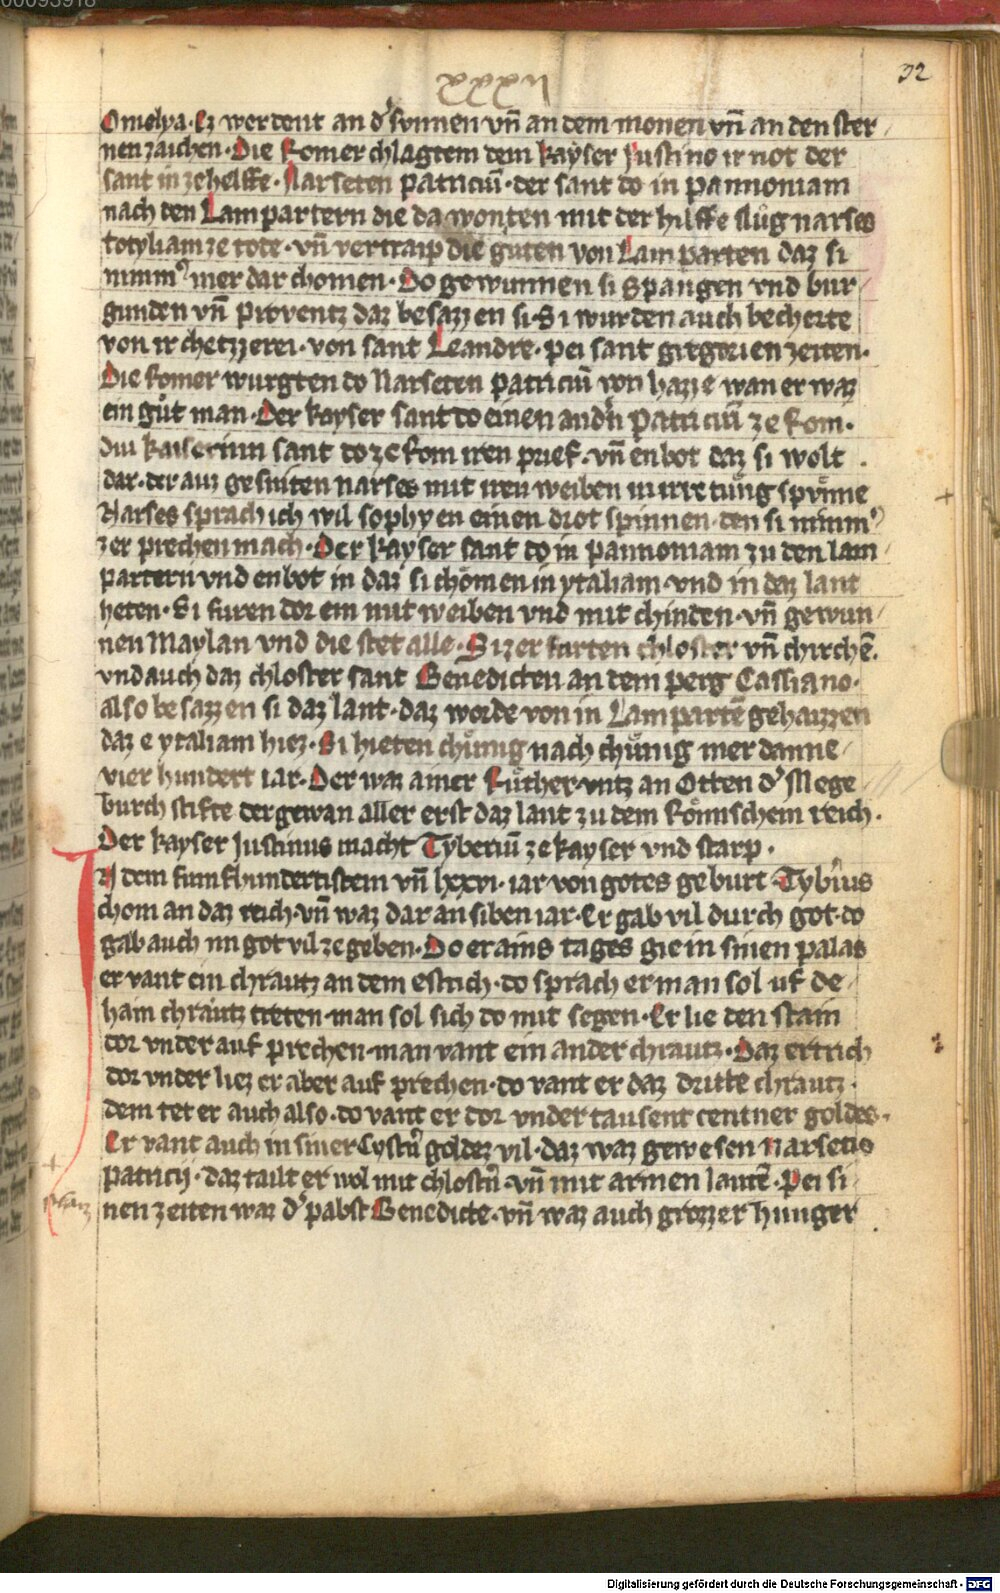 00093918
xxxij
32
Omelya · Ez werdent an dˢ svnnen vn̄ an dem monen vn̄ an den ster
nen zaichen · Die Romer chlagtem dem kayser Justino ir not der
sant in ze helffe · Narseten patriciū · der sant do in pannoniam
nach den Lampartern die da wonten mit der hilffe slůg narses
totyliam ze tode · vn̄ vertraip die guten von Lamparten daz si
nimmˢ mer dar chomen · Do gewunnen si Spangen vnd bur
gunden vn̄ Proventz daz besazzen si · Si wurden auch becherte
von ir chetzzerei · von sant Leandre · pei sant gregorien zeiten ·
Die Romer wurgten do Narseten patriciū von hazze wan er waz
ein gůt man · Der kayser sant do einen andˢn Patriciū ze Rom ·
Diu kaiserinn sant do ze Rom iren prief · vn̄ enbot daz si wolt
dar · der auz gesniten narses mit iren weiben in irre tung spvnne
Narses sprach ich wil sophyen einen drot spinnen · den si nimmˢ
zer prechen mach · Der kayser sant do in pannoniam zu den lam
partern vnd enbot in daz si chömen in ytaliam · vnd in daz lant
heten · Si furen dor ein mit weiben vnd mit chinden · vn̄ gewun
nen Maylan vnd die stet alle · Si zer furten chloster vn̄ chirchē.
vnd auch daz chloster sant Benedicten an dem perg Cassiano ·
also besazzen si daz lant · daz worde von in Lampartē gehaizzen
daz e ytaliam hiez · Si hieten chůnig nach chůnig mer danne
vier hundert iar · Der waz ainer Růther vntz an Otten dˢ Mege
burch stifte der gewan aller erst daz lant zu dem Römischem reich ·
Der kayser Justinus macht Tyberiū ze kayser vnd starp ·
IN dem funfhundertistem vn̄ lxxvi · iar von gotes geburt · Tybˢius
chom an daz reich · vn̄ waz dar an siben iar · Er gab vil durch got · do
gab auch im got vil ze geben · Do er ains tages gie in sinen palas
er vant ein chrautz an dem estrich · do sprach er man sol uf de
hain chrautz treten · man sol sich do mit segen · Er lie den stain
dor vnder auf prechen · man vant ein ander chrautz · Daz ertrich
dor vnder liez er aber auf prechen · do vant er daz dritte chrautz ·
dem tet er auch also · do vant er dor vnder tausent centner goldes ·
Er vant auch in siner Cystˢn goldez vil · daz waz gewesen Narsetis
patricij · daz tailt er wol mit chlostˢn · vn̄ mit armen lautē · Pei si
nen zeiten waz dˢ pabst Benedicte · vn̄ waz auch grozzer hunger
Digitalisierung gefördert durch die Deutsche Forschungsgemeinschaft - DFG